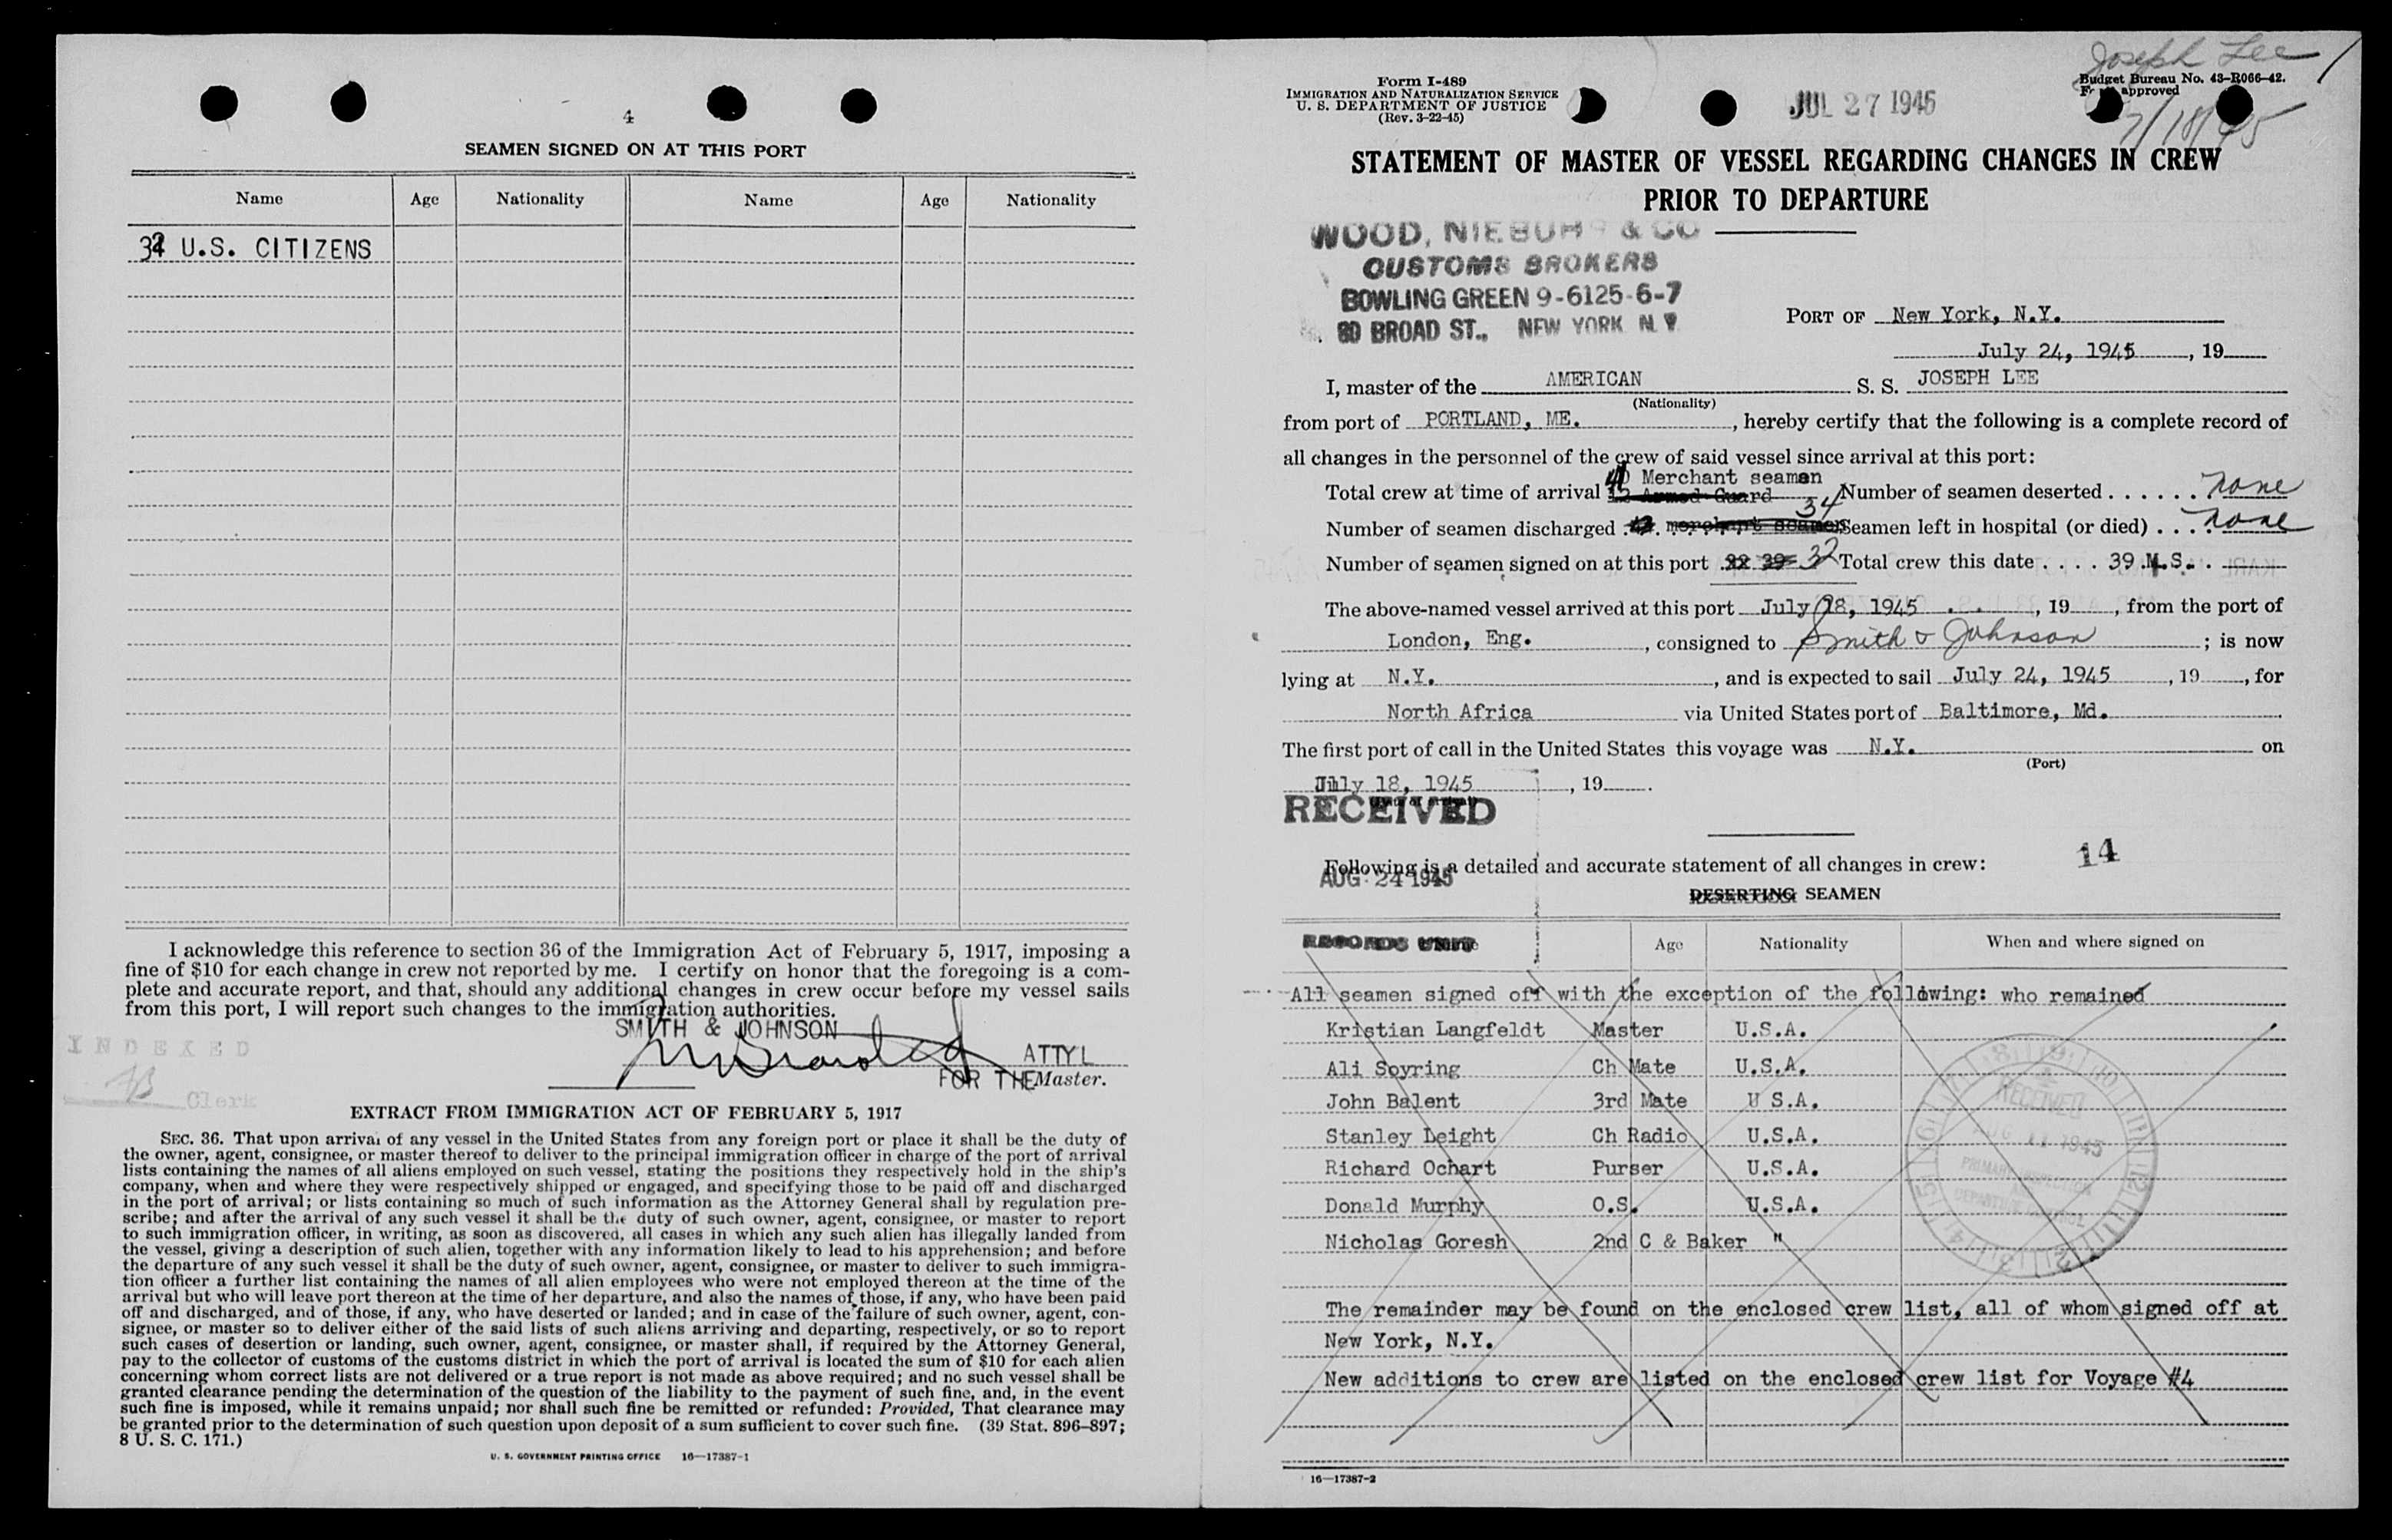 4
SEAMEN SIGNED ON AT THIS PORT
Name Age Nationality Name Age Nationality
32 U.S. CITIZENS
I acknowledge this reference to section 36 of the Immigration Act of February 5, 1917, imposing a
fine of $10 for each change in crew not reported by me. I certify on honor that the foregoing is a com-
plete and accurate report, and that, should any additional changes in crew occur before my vessel sails
from this port, I will report such changes to the immigration authorities.
SMITH & JOHNSON
ATTY
FOR THE Master.
INDEXED
Clerk
EXTRACT FROM IMMIGRATION ACT OF FEBRUARY 5, 1917
SEC. 36. That upon arrival of any vessel in the United States from any foreign port or place it shall be the duty of
the owner, agent, consignee, or master thereof to deliver to the principal immigration officer in charge of the port of arrival
lists containing the names of all aliens employed on such vessel, stating the positions they respectively hold in the ship's
company, when and where they were respectively shipped or engaged, and specifying those to be paid off and discharged
in the port of arrival; or lists containing so much of such information as the Attorney General shall by regulation pre-
scribe; and after the arrival of any such vessel it shall be the duty of such owner, agent, consignee, or master to report
to such immigration officer, in writing, as soon as discovered, all cases in which any such alien has illegally landed from
the vessel, giving a description of such alien, together with any information likely to lead to his apprehension; and before
the departure of any such vessel it shall be the duty of such owner, agent, consignee, or master to deliver to such immigra-
tion officer a further list containing the names of all alien employees who were not employed thereon at the time of the
arrival but who will leave port thereon at the time of her departure, and also the names of those, if any, who have been paid
off and discharged, and of those, if any, who have deserted or landed; and in case of the failure of such owner, agent, con-
signee, or master so to deliver either of the said lists of such aliens arriving and departing, respectively, or so to report
such cases of desertion or landing, such owner, agent, consignee, or master shall, if required by the Attorney General,
pay to the collector of customs of the customs district in which the port of arrival is located the sum of $10 for each alien
concerning whom correct lists are not delivered or a true report is not made as above required; and no such vessel shall be
granted clearance pending the determination of the question of the liability to the payment of such fine, and, in the event
such fine is imposed, while it remains unpaid; nor shall such fine be remitted or refunded: Provided, That clearance may
be granted prior to the determination of such question upon deposit of a sum sufficient to cover such fine. (39 Stat. 896-897;
8 U. S. C. 171.)
U. S. GOVERNMENT PRINTING OFFICE 16—17387-1
Joseph Lee
7/18/45
Form I-489
IMMIGRATION AND NATURALIZATION SERVICE
U. S. DEPARTMENT OF JUSTICE
(Rev. 3-22-45)
JUL 27 1945
Budget Bureau No. 43-R066-42.
approved
STATEMENT OF MASTER OF VESSEL REGARDING CHANGES IN CREW
PRIOR TO DEPARTURE
WOOD, NIEBUHR & CO
CUSTOMS BROKERS
BOWLING GREEN 9-6125-6-7
80 BROAD ST., NEW YORK N. Y.
PORT OF New York, N.Y.
July 24, 1945, 19
I, master of the AMERICAN S. S. JOSEPH LEE
(Nationality)
from port of PORTLAND, ME., hereby certify that the following is a complete record of
all changes in the personnel of the crew of said vessel since arrival at this port:
Merchant seamen
Total crew at time of arrival 12 Armed Guard Number of seamen deserted . . . . . . none
Number of seamen discharged merchant seamen 34 Seamen left in hospital (or died) . . . . none
Number of seamen signed on at this port 32 39 32 Total crew this date . . . . 39 M.S.
The above-named vessel arrived at this port July 18, 1945, 19, from the port of
London, Eng., consigned to Smith & Johnson; is now
lying at N.Y., and is expected to sail July 24, 1945, 19, for
North Africa via United States port of Baltimore, Md.
The first port of call in the United States this voyage was N.Y. on
(Port)
July 18, 1945, 19.
RECEIVED
AUG 24 1945
RECORDS UNIT
14
Following is a detailed and accurate statement of all changes in crew:
DESERTING SEAMEN
Age Nationality When and where signed on
All seamen signed off with the exception of the following: who remained
Kristian Langfeldt Master U.S.A.
Ali Soyring Ch Mate U.S.A.
John Balent 3rd Mate U S.A.
Stanley Deight Ch Radio U.S.A.
Richard Ochart Purser U.S.A.
Donald Murphy O.S. U.S.A.
Nicholas Goresh 2nd C & Baker "
RECEIVED
1945
The remainder may be found on the enclosed crew list, all of whom signed off at
New York, N.Y.
New additions to crew are listed on the enclosed crew list for Voyage #4
16—17387-2